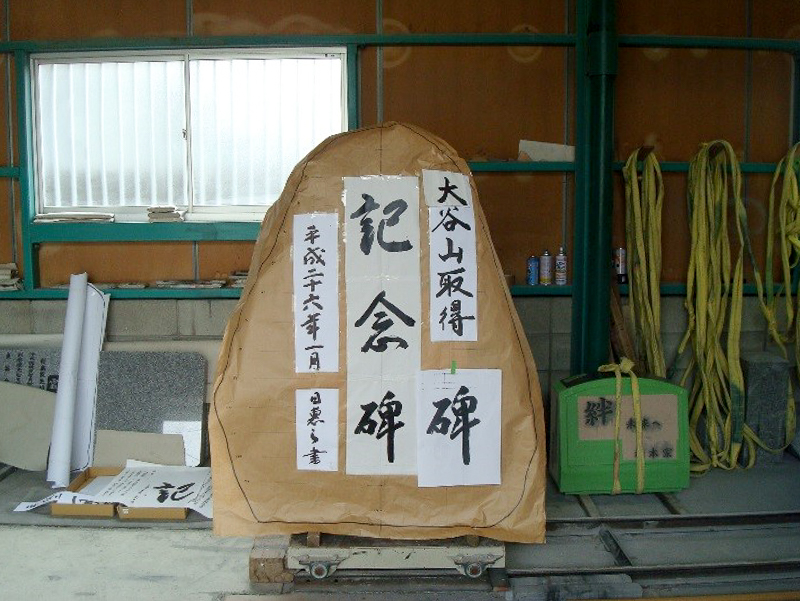 大谷山取得
記念碑
碑
平成二十六年一月
日恵之書
絆
未来へ
記